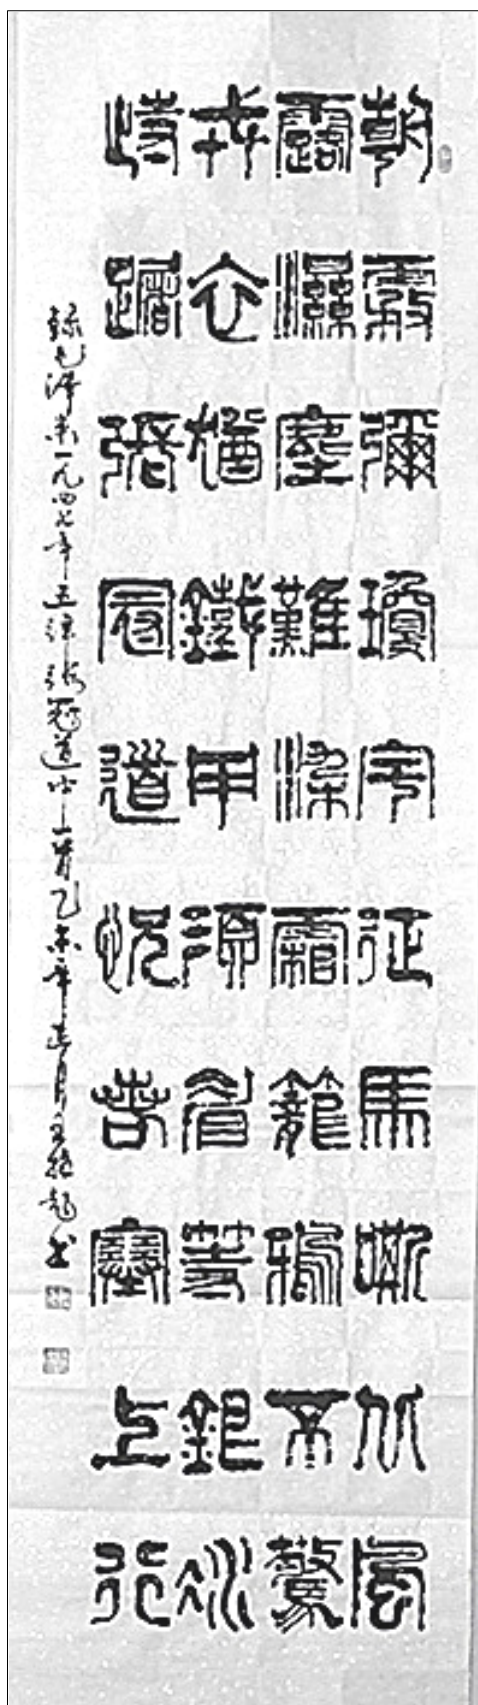 朝霧彌瓊宇征馬嘶北風
露濕塵難染霜籠鴉不驚
戎衣猶鐵甲須眉等銀冰
歭躇張冠道怳若塞上行
錄毛澤東一九四七年五律張冠道中一首乙未年正月王龍書